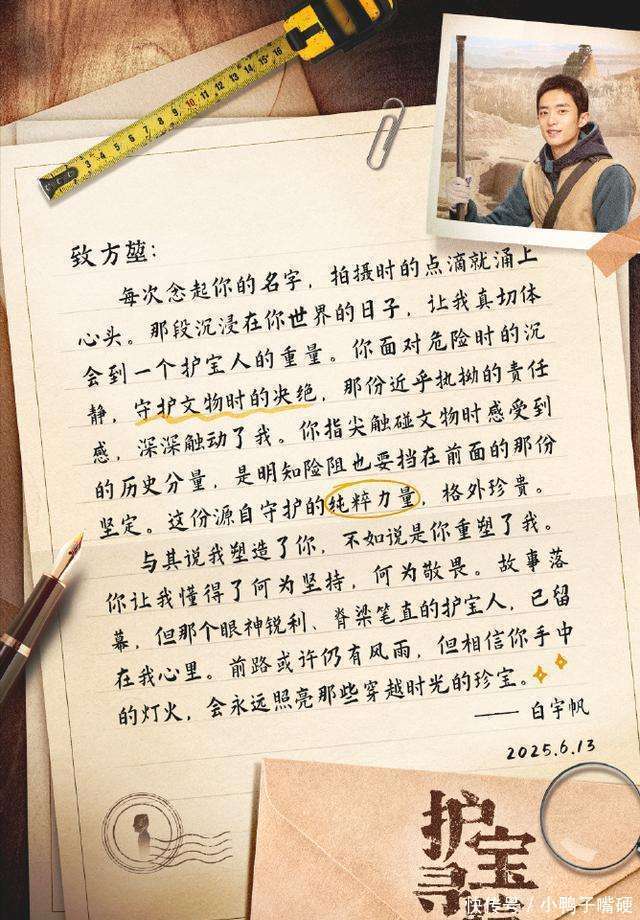 3 4 5 6 7 8 9 10 11 12 13 14 15 16
致方堃：
每次念起你的名字，拍摄时的点滴就涌上
心头。那段沉浸在你世界的日子，让我真切体
会到一个护宝人的重量。你面对危险时的沉
静，守护文物时的决绝，那份近乎执拗的责任
感，深深触动了我。你指尖触碰文物时感受到
的历史分量，是明知险阻也要挡在前面的那份
坚定。这份源自守护的纯粹力量，格外珍贵。
与其说我塑造了你，不如说是你重塑了我。
你让我懂得了何为坚持，何为敬畏。故事落
幕，但那个眼神锐利、脊梁笔直的护宝人，已留
在我心里。前路或许仍有风雨，但相信你手中
的灯火，会永远照亮那些穿越时光的珍宝。
—— 白宇帆
2025.6.13
护宝
寻
快传号 / 小鹏子嘴硬